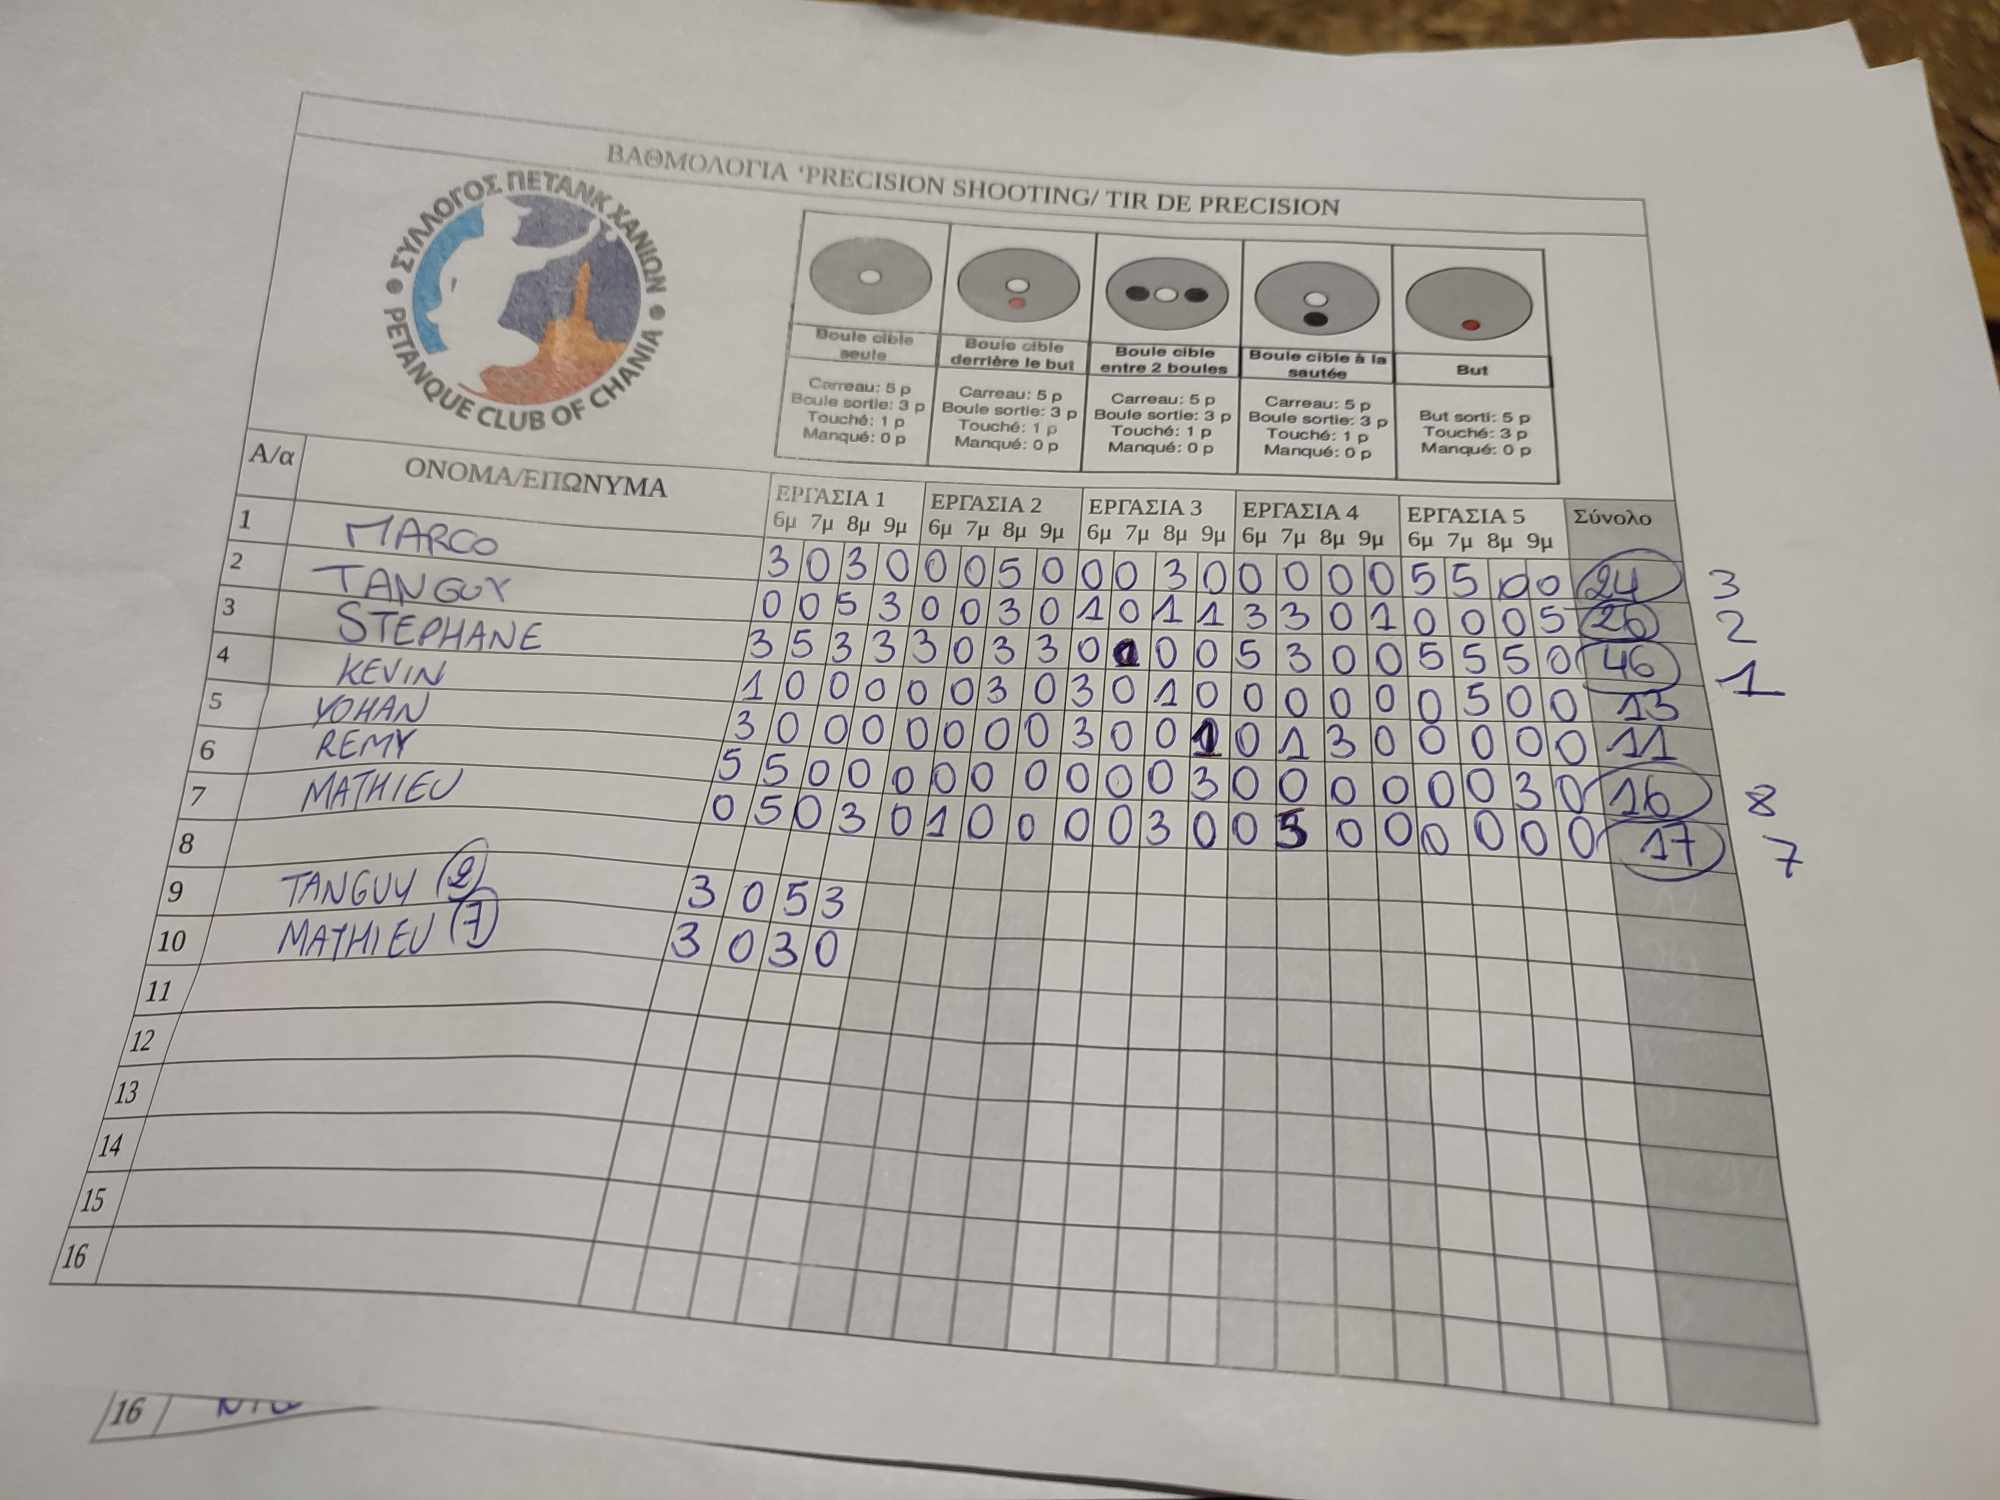 ΒΑΘΜΟΛΟΓΙΑ ‘PRECISION SHOOTING/ TIR DE PRECISION
ΣΥΛΛΟΓΟΣ ΠΕΤΑΝΚ ΧΑΝΙΩΝ
PETANQUE CLUB OF CHANIA
Boule cible seule
Carreau: 5 p
Boule sortie: 3 p
Touché: 1 p
Manqué: 0 p
Boule cible derrière le but
Carreau: 5 p
Boule sortie: 3 p
Touché: 1 p
Manqué: 0 p
Boule cible entre 2 boules
Carreau: 5 p
Boule sortie: 3 p
Touché: 1 p
Manqué: 0 p
Boule cible à la sautée
Carreau: 5 p
Boule sortie: 3 p
Touché: 1 p
Manqué: 0 p
But
But sorti: 5 p
Touché: 3 p
Manqué: 0 p
Α/α ΟΝΟΜΑ/ΕΠΩΝΥΜΑ ΕΡΓΑΣΙΑ 1 ΕΡΓΑΣΙΑ 2 ΕΡΓΑΣΙΑ 3 ΕΡΓΑΣΙΑ 4 ΕΡΓΑΣΙΑ 5 Σύνολο
6μ 7μ 8μ 9μ 6μ 7μ 8μ 9μ 6μ 7μ 8μ 9μ 6μ 7μ 8μ 9μ 6μ 7μ 8μ 9μ
1 MARCO 3 0 3 0 0 0 5 0 0 0 3 0 0 0 0 0 5 5 0 0 24 3
2 TANGUY 0 0 5 3 0 0 3 0 1 0 1 1 3 3 0 1 0 0 0 5 26 2
3 STEPHANE 3 5 3 3 3 0 3 3 0 0 0 0 5 3 0 0 5 5 5 0 46 1
4 KEVIN 1 0 0 0 0 0 3 0 3 0 1 0 0 0 0 0 0 5 0 0 13
5 YOHAN 3 0 0 0 0 0 0 0 3 0 0 1 0 1 3 0 0 0 0 0 11
6 REMY 5 5 0 0 0 0 0 0 0 0 0 3 0 0 0 0 0 0 3 0 16 8
7 MATHIEU 0 5 0 3 0 1 0 0 0 0 3 0 0 5 0 0 0 0 0 0 17 7
8
9 TANGUY (2) 3 0 5 3
10 MATHIEU (7) 3 0 3 0
11
12
13
14
15
16
16